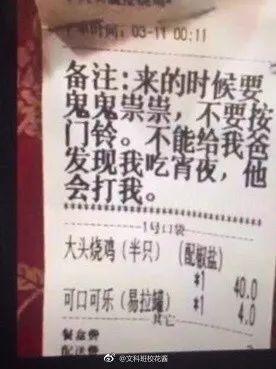 下单时间: 03-11 00:11
备注:来的时候要
鬼鬼祟祟，不要按
门铃。不能给我爸
发现我吃宵夜，他
会打我。
1号口袋
大头烧鸡（半只）（配椒盐）
*1 40.0
可口可乐（易拉罐） *1 4.0
其它
餐盒费
@文科班校花酱